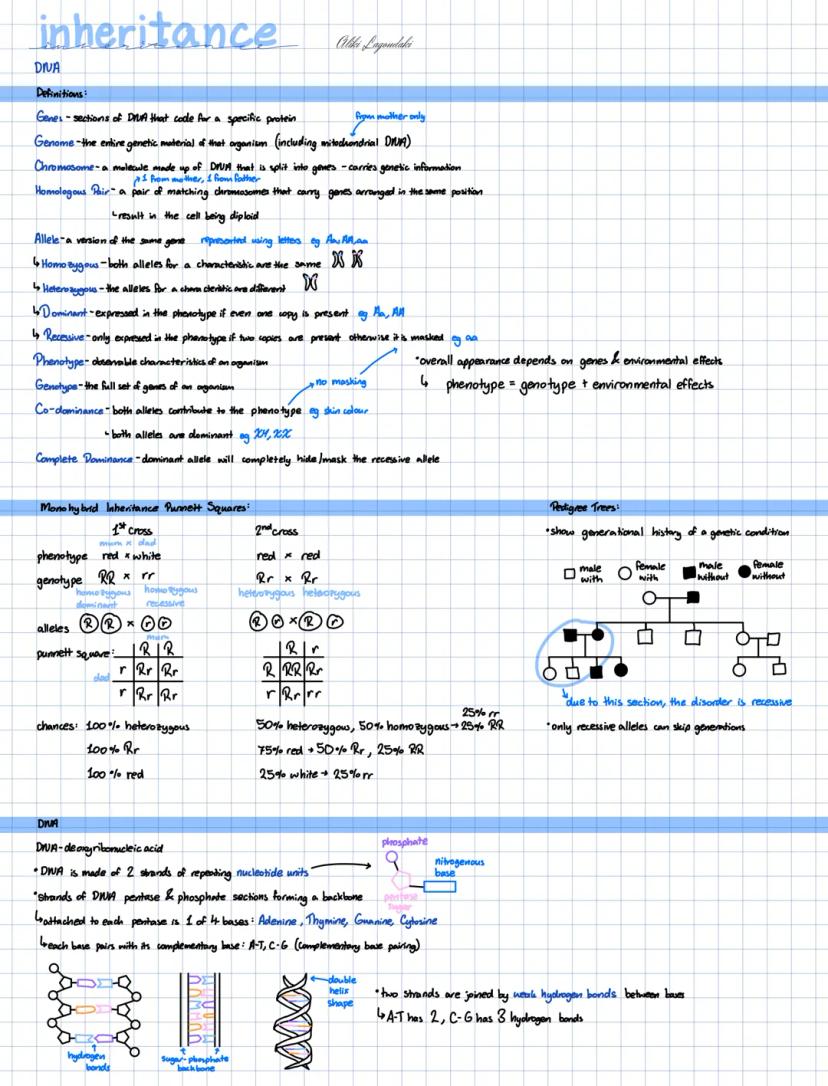 inheritance
inheritance
Aliki Lagoudaki
DNA
Definitions:
Genes - sections of DNA that code for a specific protein
from mother only
Genome - the entire genetic material of that organism (including mitochondrial DNA)
Chromosome - a molecule made up of DNA that is split into genes - carries genetic information
1 from mother, 1 from father
Homologous Pair - a pair of matching chromosomes that carry genes arranged in the same position
↳result in the cell being diploid
Allele - a version of the same gene represented using letters eg Aa, AA, aa
↳ Homozygous - both alleles for a characteristic are the same
↳ Heterozygous - the alleles for a characteristic are different
↳Dominant - expressed in the phenotype if even one copy is present eg Aa, AA
↳ Recessive - only expressed in the phenotype if two copies are present otherwise it is masked eg aa
Phenotype - observable characteristics of an organism
•overall appearance depends on genes & environmental effects
Genotype - the full set of genes of an organism
no masking
↳ phenotype = genotype + environmental effects
Co-dominance - both alleles contribute to the phenotype eg skin colour
↳both alleles are dominant eg
Complete Dominance - dominant allele will completely hide/mask the recessive allele
Monohybrid Inheritance Punnett Squares:
1st Cross
2nd cross
mum × dad
phenotype red × white
red × red
genotype RR × rr
Rr × Rr
homozygous dominant
homozygous recessive
heterozygous heterozygous
alleles R R × r r
R r × R r
mum
punnett square:
dad
R R
r Rr Rr
r Rr Rr
R r
R RR Rr
r Rr rr
chances: 100% heterozygous
100% Rr
100% red
25% rr
50% heterozygous, 50% homozygous → 25% RR
75% red → 50% Rr, 25% RR
25% white → 25% rr
Pedigree Trees:
•show generational history of a genetic condition
male with
female with
male without
female without
due to this section, the disorder is recessive
•only recessive alleles can skip generations
DNA
DNA - deoxyribonucleic acid
•DNA is made of 2 strands of repeating nucleotide units
phosphate
nitrogenous base
pentose sugar
•strands of DNA pentose & phosphate sections forming a backbone
↳attached to each pentose is 1 of 4 bases: Adenine, Thymine, Guanine, Cytosine
↳each base pairs with its complementary base: A-T, C-G (complementary base pairing)
hydrogen bonds
sugar-phosphate backbone
double helix shape
•two strands are joined by weak hydrogen bonds between bases
↳A-T has 2, C-G has 3 hydrogen bonds